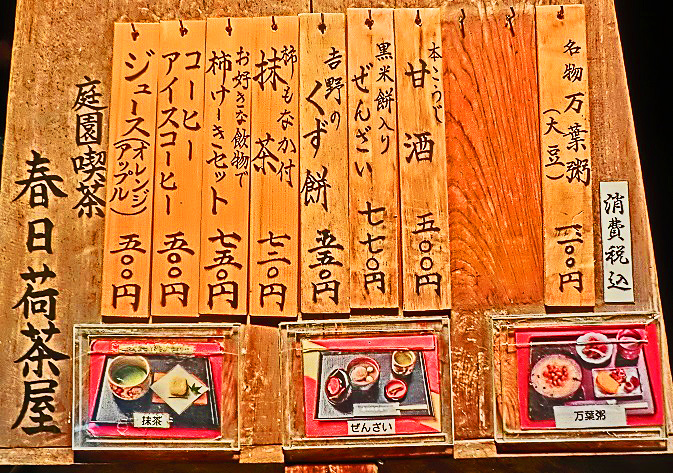 名物 万葉粥
(大豆)
一、一〇〇円
消費税込
本こうじ
甘酒
五〇〇円
黒米餅入り
ぜんざい
七七〇円
吉野の
くず餅
五五〇円
柿もなか付
抹茶
七二〇円
お好きな飲物で
柿けーきセット
七五〇円
コーヒー
アイスコーヒー
五〇〇円
ジュース(オレンジ
アップル)
五〇〇円
庭園喫茶
春日荷茶屋
抹茶
ぜんざい
万葉粥